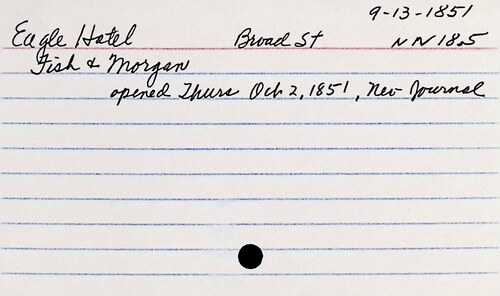 9-13-1851
Eagle Hotel Broad St NN 18.5
Fish & Morgan
opened Thurs Oct 2, 1851, Nev Journal